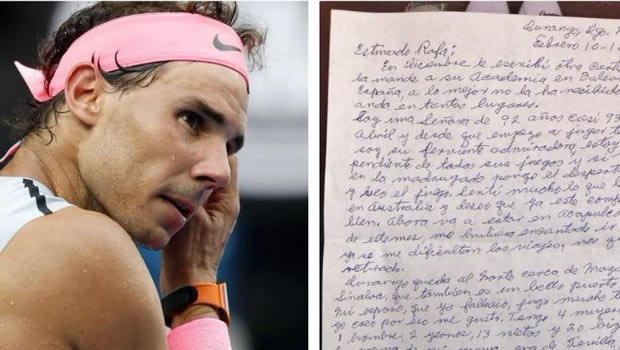 Durango, Dgo.
Febrero 10-1
Estimado Rafa:
En diciembre le escribí otra carta
la mandé a su Academia en
España, a lo mejor no la ha recibido
anda en tantos lugares.
Soy una Señora de 92 años casi 93
Abril y desde que empezó a jugar
soy su ferviente admiradora, estoy
pendiente de todos sus juegos y si
en la madrugada pongo el
y veo el juego. Sentí mucho lo que
en Australia y deseo que ya esté
bien. Ahora va a estar en Acapulco
me hubiera encantado ir
ya se me dificultan los viajes,
retirado.
Durango queda al Norte cerca de
Sinaloa, que también es un bello puerto
mi esposo, que ya falleció, jugó mucho
yo creo por eso me gustó. Tengo 4
1 hombre, 2 yernos, 13 nietos y 20